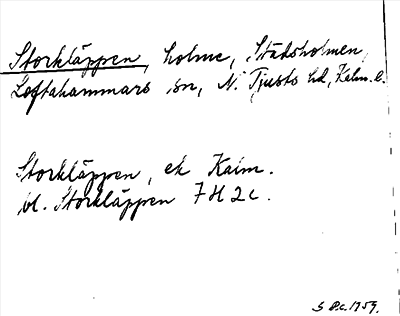 Storkläppen, holme, Stadsholmen,
Loftahammars sn, N. Tjusts hd, Kalm. l.
Storkläppen, ek Kalm.
bl. Storkläppen 7 H 2 c.
S 1959.